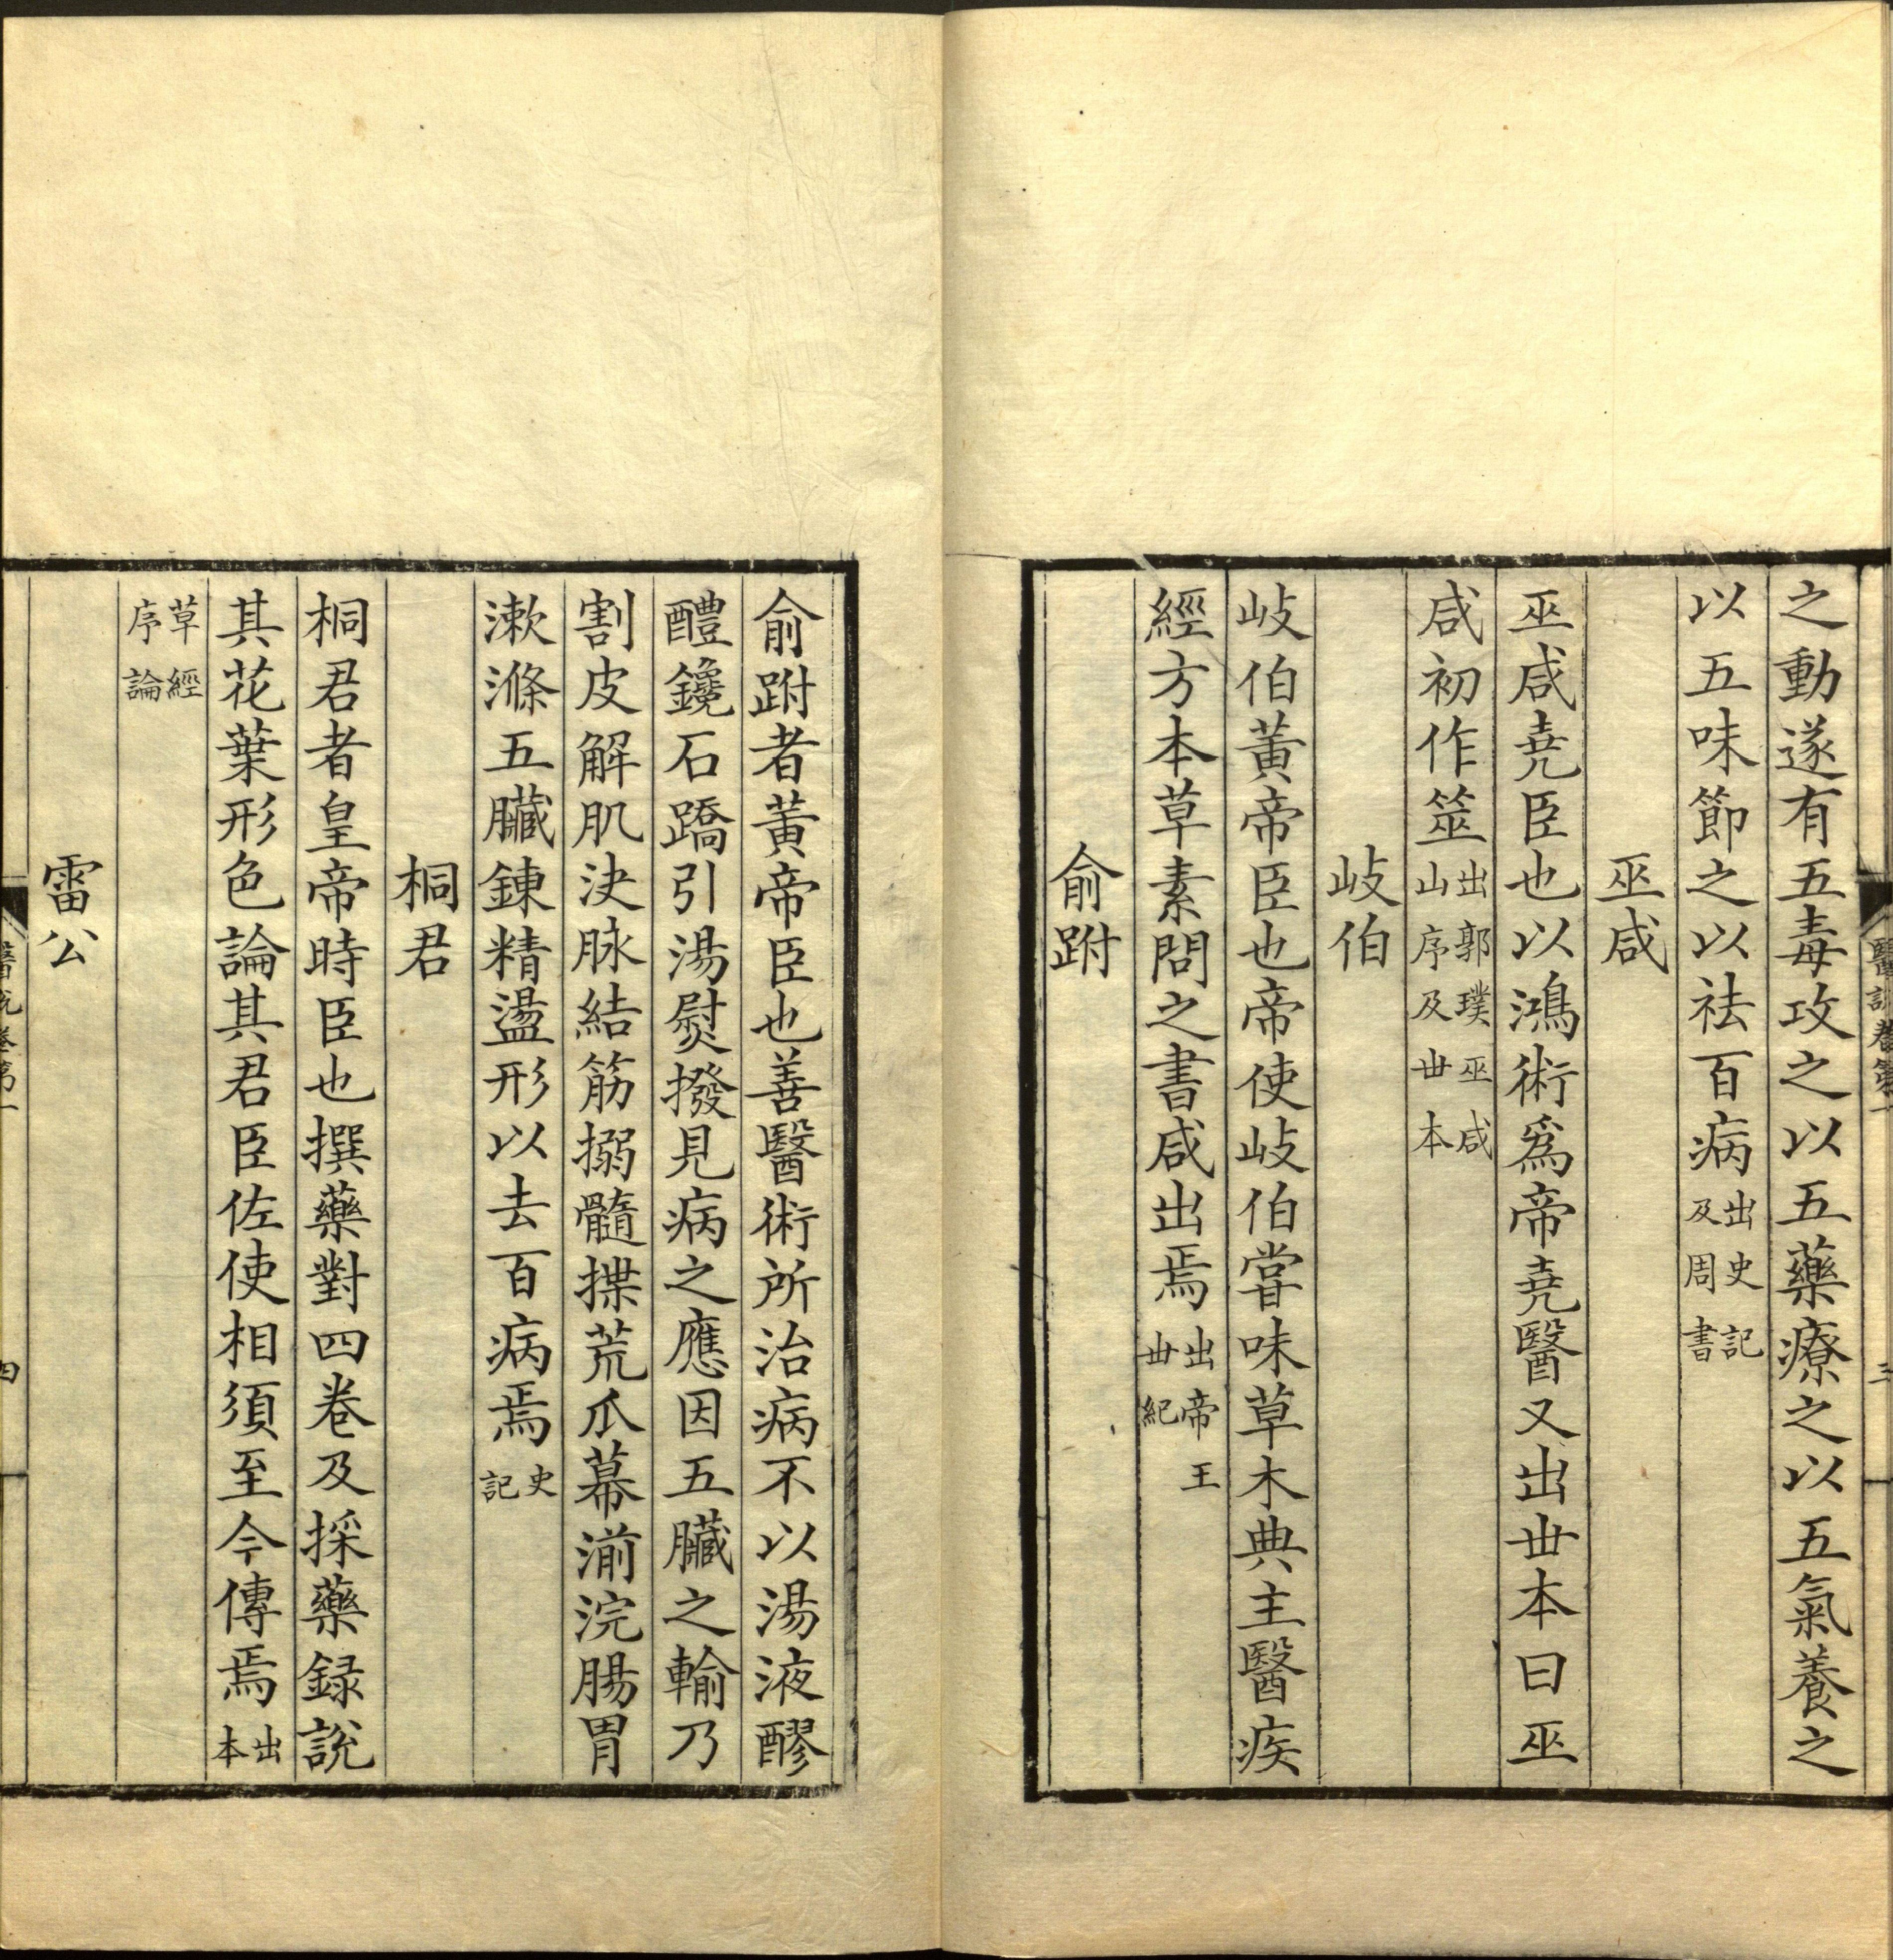 之動遂有五毒攻之以五藥療之以五氣養之
以五味節之以祛百病出史記及周書
巫咸
巫咸堯臣也以鴻術爲帝堯醫又出丗本曰巫
咸初作筮出郭璞巫咸山序及丗本
岐伯
岐伯黃帝臣也帝使岐伯甞味草木典主醫疾
經方本草素問之書咸出焉出帝王丗紀
俞跗
俞跗者黃帝臣也善醫術所治病不以湯液醪
醴鑱石蹻引湯熨撥見病之應因五臟之輸乃
割皮解肌決脉結筋搦髓揲荒爪幕湔浣腸胃
漱滌五臟鍊精盪形以去百病焉史記
桐君
桐君者皇帝時臣也撰藥對四卷及採藥録説
其花葉形色論其君臣佐使相須至今傳焉出本
草經序論
雷公